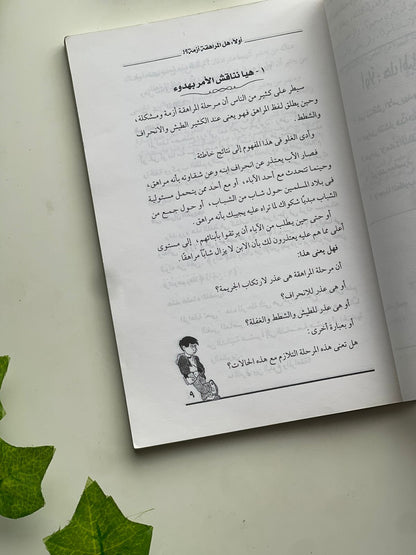 أولاً: هل المراهقة أزمة؟!
١ - هيا نناقش الأمر بهدوء
سيطر على كثير من الناس أن مرحلة المراهقة أزمة ومشكلة،
وحين يطلق لفظ المراهق فهو يعنى عند الكثير الطيش والانحراف
والشطط.
وأدى الغلو فى هذا المفهوم إلى نتائج خاطئة:
فصار الأب يعتذر عن انحراف ابنه وعن شقاوته بأنه مراهق،
وحينما تتحدث مع أحد الآباء، أو مع أحد ممن يتحمل مسئولية
فى بلاد المسلمين حول شاب من الشباب، أو حول جمع من
الشباب مبديًا شكواك لما تراه عليه يجيبك بأنه مراهق.
أو حتى حين يطلب من الآباء أن يرتقوا بأبنائهم، إلى مستوى
أعلى مما هم عليه يعتذرون لك بأن الابن لا يزال شابًا مراهقًا.
فهل يعنى هذا:
أن مرحلة المراهقة هى عذر لارتكاب الجريمة؟
أو هى عذر للإنحراف؟
أو هى عذر للطيش والشطط والغفلة؟
أو بعبارة أخرى:
هل تعنى هذه المرحلة التلازم مع هذه الحالات؟
٩